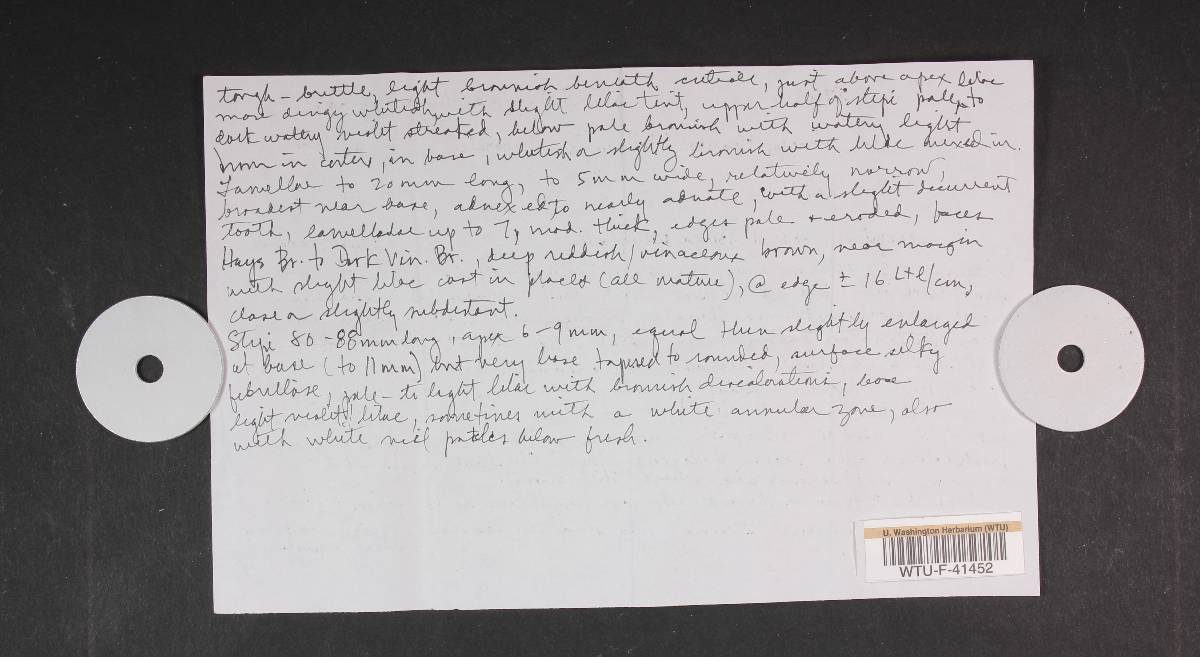 tough-brittle, light brownish beneath cuticle, just above apex lilac
more dingy whitish with slight lilac tint, upper half of stipe pale to
dark watery violet streaked, below pale brownish with watery light
brown in cortex, in base, whitish or slightly brownish with lilac mixed in.
Lamellae to 20 mm long, to 5 mm wide, relatively narrow,
broadest near base, adnexed to nearly adnate, with a slight decurrent
tooth, lamellulae up to 7, mod. thick, edges pale + eroded, faces
Hays Br. to Dark Vin. Br., deep reddish/vinaceous brown, near margin
with slight lilac cast in places (all mature), @ edge ± 16 L+l/cm,
close or slightly subdistant.
Stipe 80-88 mm long, apex 6-9 mm, equal then slightly enlarged
at base (to 11 mm) but very base tapered to rounded, surface silky
fibrillose, pale- to light lilac with brownish discolorations, base
light violet/lilac, sometimes with a white annular zone, also
with white veil patches below fresh.
U. Washington Herbarium (WTU)
WTU-F-41452